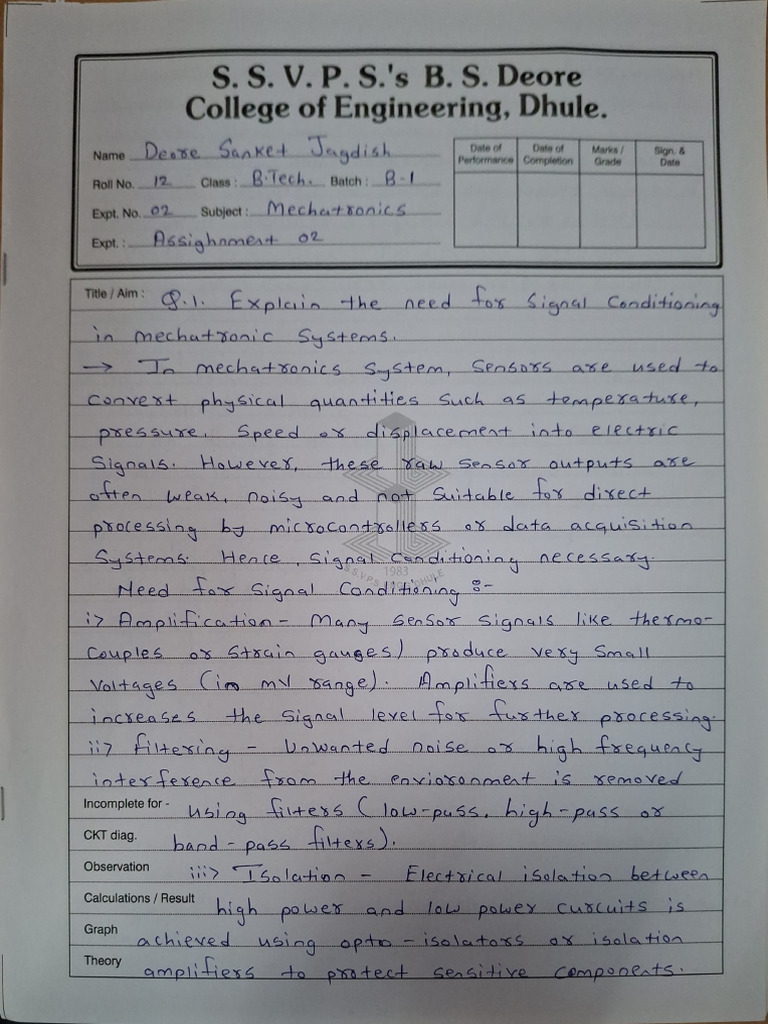 S. S. V. P. S.'s B. S. Deore
College of Engineering, Dhule.
Name Deore Sanket Jagdish
Roll No. 12 Class : B.Tech. Batch : B-1
Expt. No. 02 Subject : Mechatronics
Expt. : Assighnment 02
Date of Performance Date of Completion Marks / Grade Sign. & Date
Title / Aim : Q.1. Explain the need for Signal Conditioning
in mechatronic Systems.
→ In mechatronics System, Sensors are used to
convert physical quantities Such as temperature,
pressure, Speed or displacement into electric
Signals. However, these raw sensor outputs are
often weak, noisy and not Suitable for direct
processing by microcontrollers or data acquisition
Systems. Hence, Signal Conditioning necessary.
1983
Need for Signal Conditioning :-
i> Amplification - Many Sensor Signals like thermo-
couples or Strain gauges) produce very Small
Voltages (in mV range). Amplifiers are used to
increases the Signal level for further processing.
ii> filtering - Unwanted noise or high frequency
interference from the envioronment is removed
Incomplete for - using filters (low-pass, high-pass or
CKT diag. band-pass filters).
Observation iii> Isolation - Electrical isolation between
Calculations / Result high power and low power curcuits is
Graph achieved using opto-isolators or isolation
Theory amplifiers to protect sensitive components.